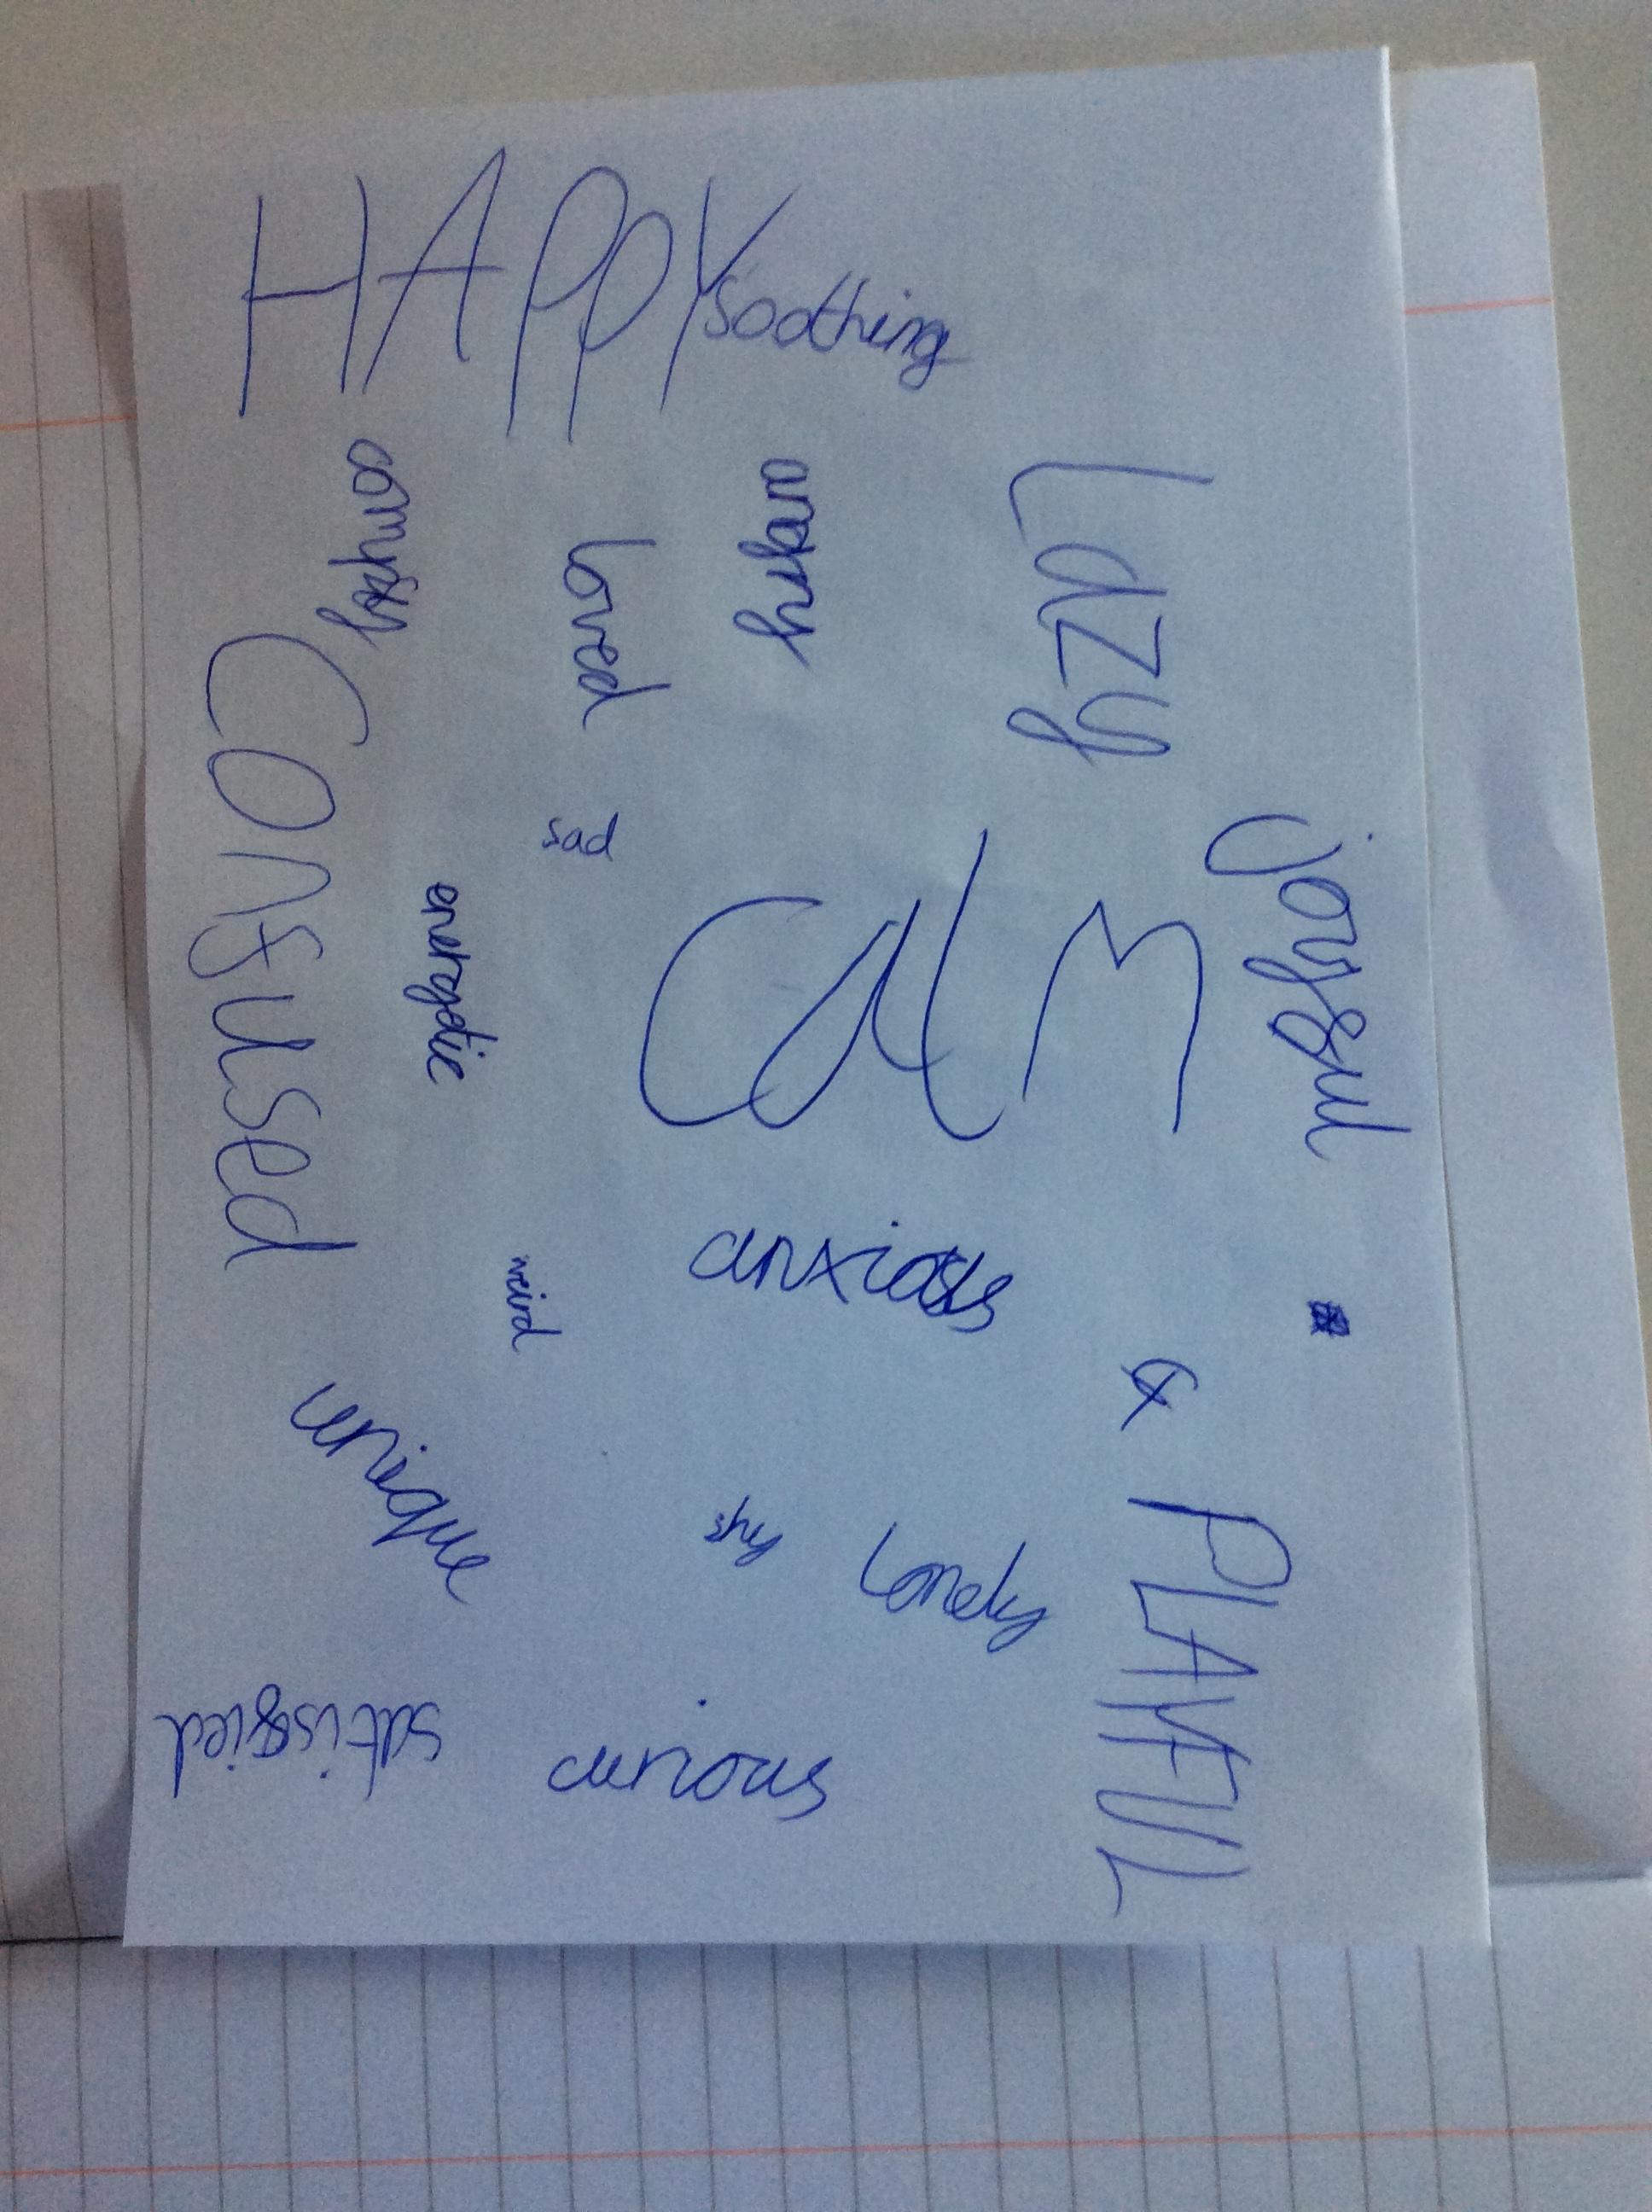 HAPPY
soothing
comfy
loved
angry
Lazy
confused
sad
energetic
calm
joyful
anxious
weird
&
unique
shy
Lonely
PLAYFUL
satisfied
curious